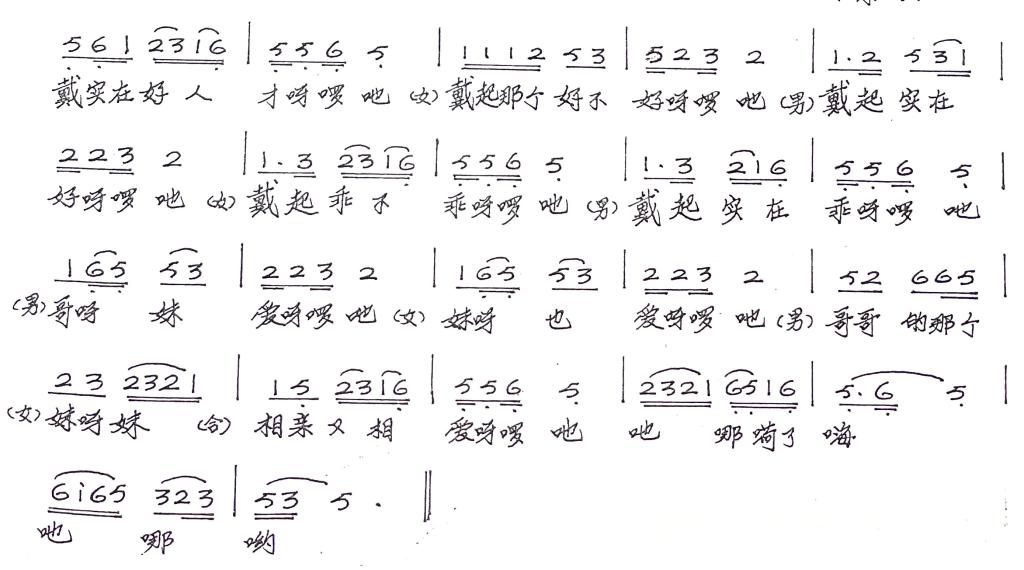 5 6 1 2316 | 5 5 6 5 | 1112 53 | 523 2 | 1·2 531 |
戴实在好人 才呀啰吔 (女) 戴起那个好不 好呀啰吔 (男) 戴起实在
223 2 | 1·3 2316 | 556 5 | 1·3 216 | 556 5 |
好呀啰吔 (女) 戴起乖不 乖呀啰吔 (男) 戴起实在 乖呀啰吔
165 53 | 223 2 | 165 53 | 223 2 | 52 665 |
(男) 哥呀妹 爱呀啰吔 (女) 妹呀也 爱呀啰吔 (男) 哥哥的那个
23 2321 | 15 2316 | 556 5 | 2321 6516 | 5·6 5 |
(女) 妹呀妹 (合) 相亲又相 爱呀啰吔 吔 哪嗬了嗨
6i65 323 | 53 5 · ‖
吔 哪 哟